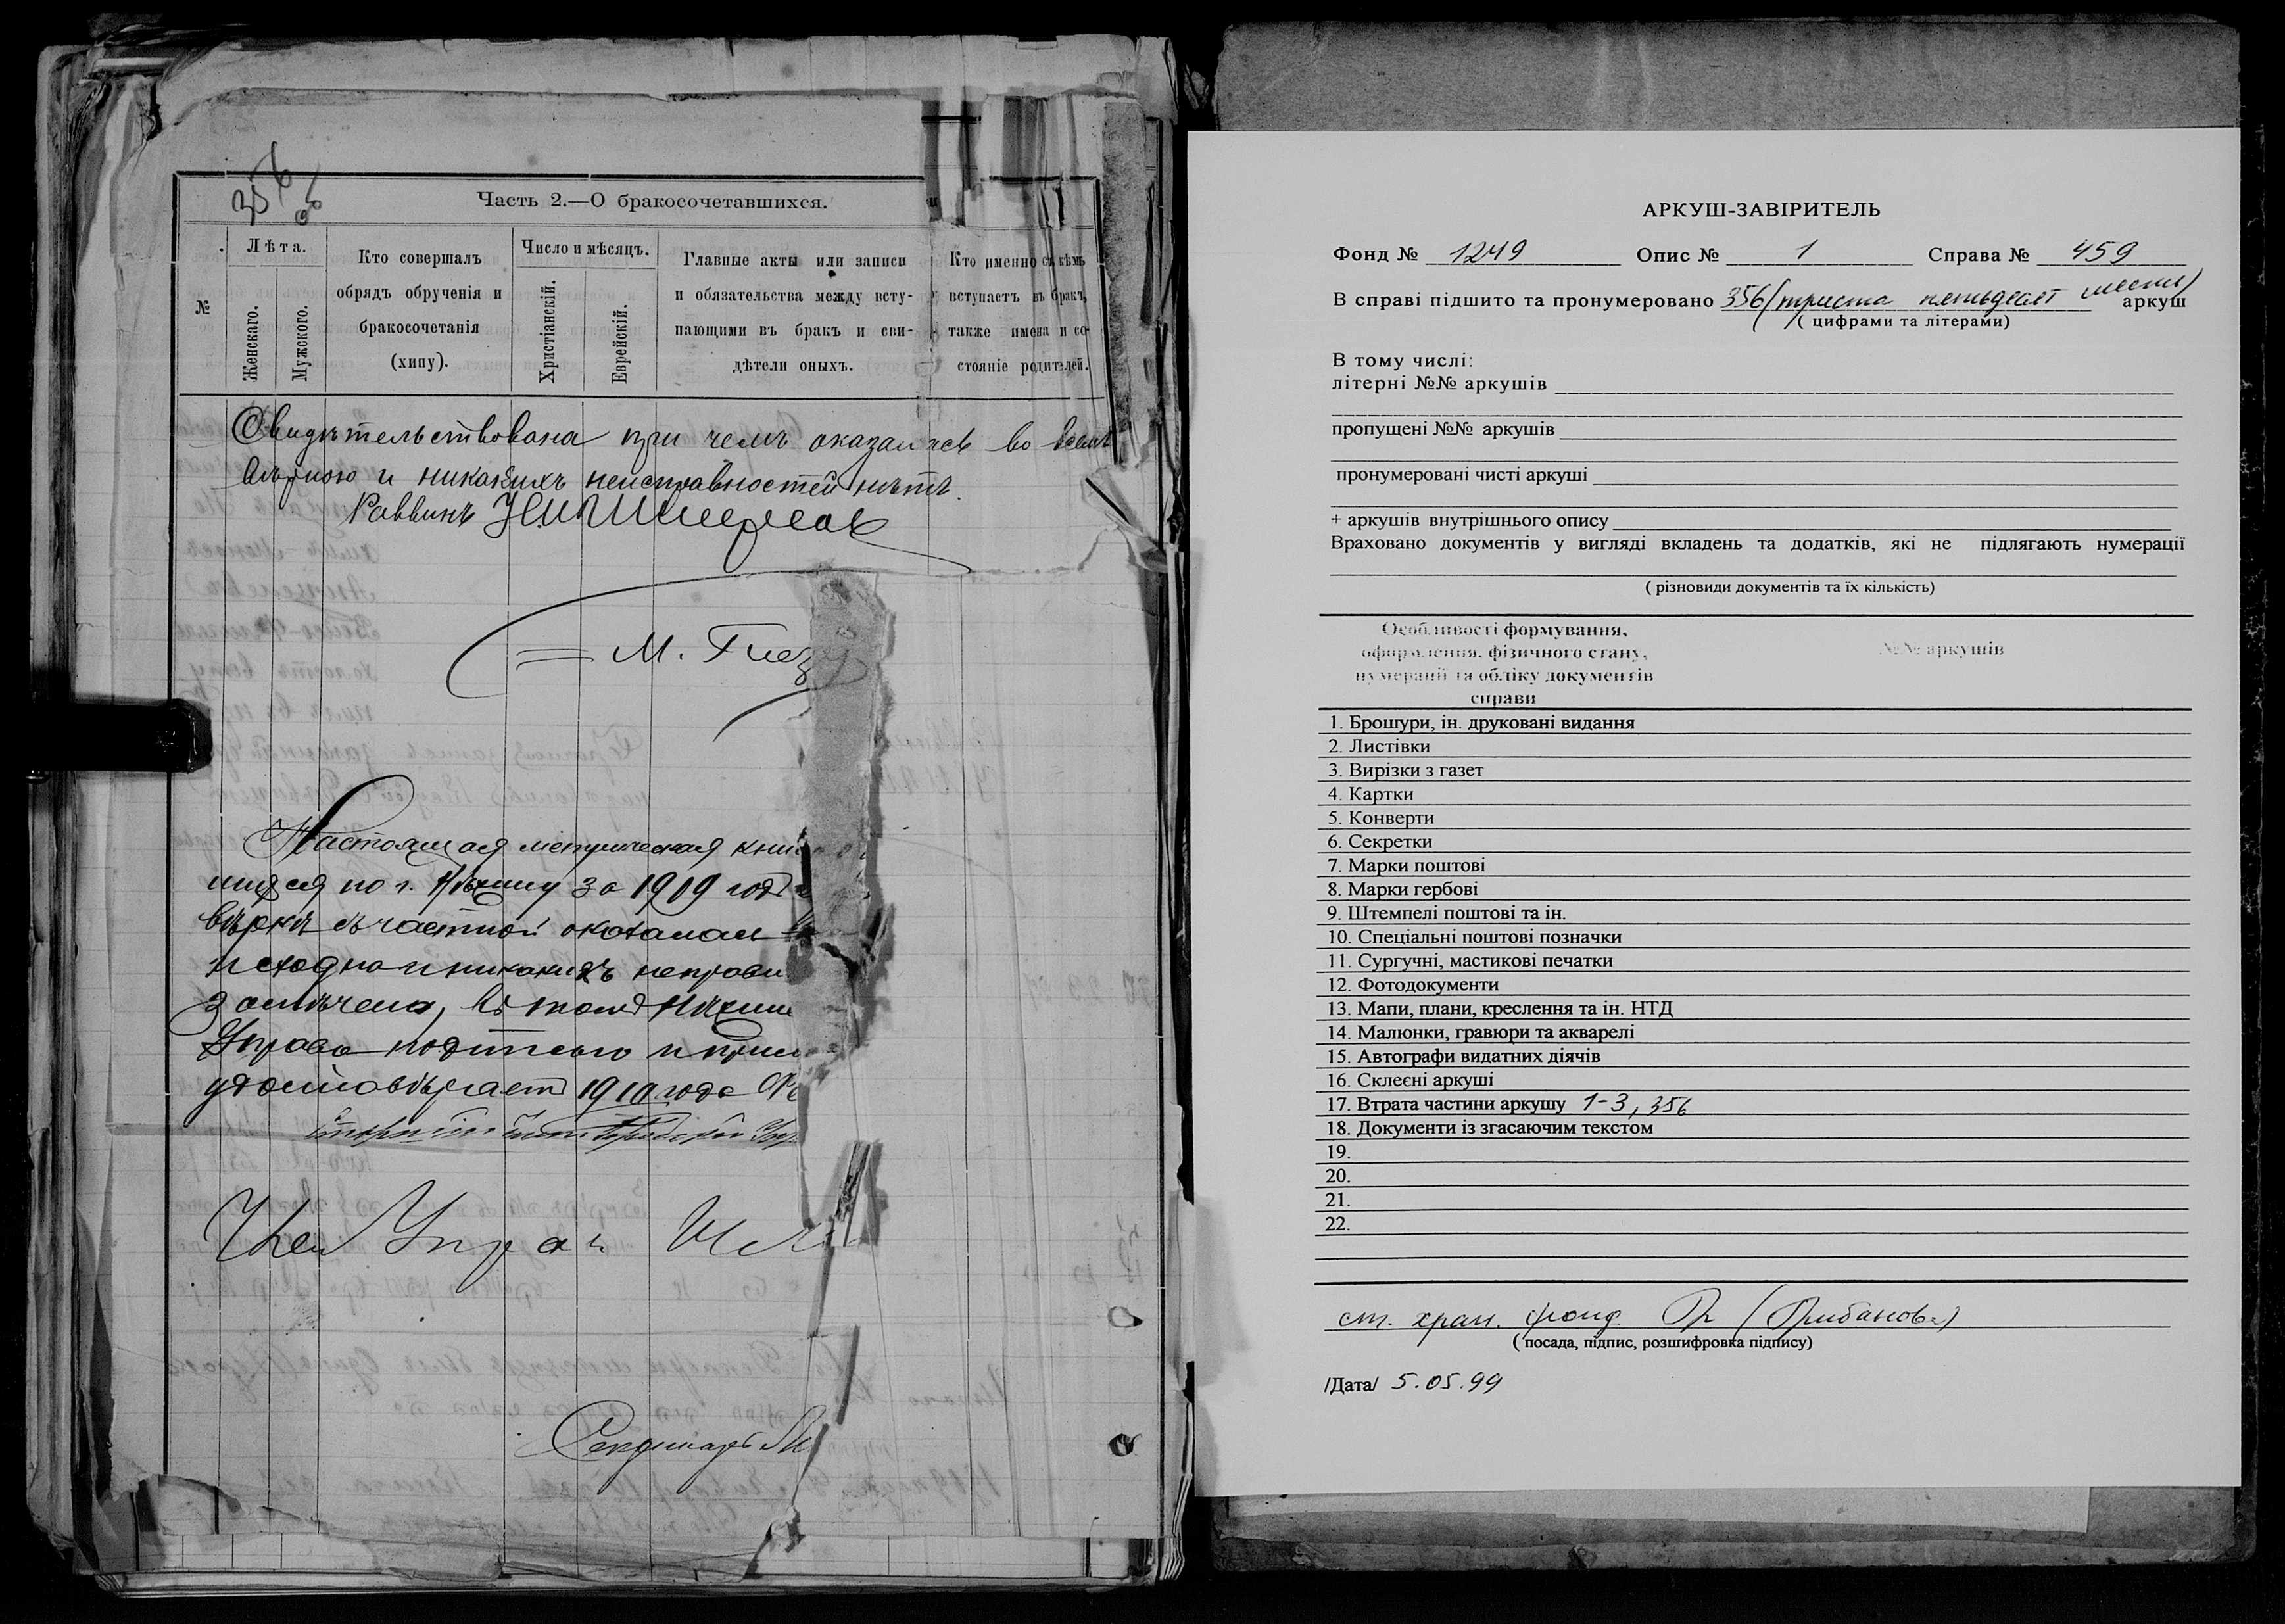 356
Часть 2.—О бракосочетавшихся.
№
Лѣта.
Женскаго.
Мужского.
Кто совершалъ
обрядъ обрученія и
бракосочетанія
(хипу).
Число и мѣсяцъ.
Христіанскій.
Еврейскій.
Главные акты или записи
и обязательства между всту-
пающими въ бракъ и сви-
дѣтели оныхъ.
Кто именно съ кѣмъ
вступаетъ въ бракъ,
также имена и со-
стояніе родителей.
Свидѣтельствована при чемъ оказалась во всемъ
вѣрною и никакихъ неисправностей нѣтъ.
Раввинъ
М.
Настоящая метрическая кни
по г. за 1909 годъ
вѣркѣ съ частной оказалась
и никакихъ неправи
замѣчено, въ томъ
Управа подписью и
удостовѣряетъ 1910 года
Член Управы
Секретарь М
АРКУШ-ЗАВІРИТЕЛЬ
Фонд № 1249 Опис № 1 Справа № 459
В справі підшито та пронумеровано 356 (триста пятьдесят шесть) аркуш
( цифрами та літерами)
В тому числі:
літерні №№ аркушів
пропущені №№ аркушів
пронумеровані чисті аркуші
+ аркушів внутрішнього опису
Враховано документів у вигляді вкладень та додатків, які не підлягають нумерації
( різновиди документів та їх кількість)
Особливості формування,
оформлення, фізичного стану,
нумерації та обліку документів
справи
№№ аркушів
1. Брошури, ін. друковані видання
2. Листівки
3. Вирізки з газет
4. Картки
5. Конверти
6. Секретки
7. Марки поштові
8. Марки гербові
9. Штемпелі поштові та ін.
10. Спеціальні поштові позначки
11. Сургучні, мастикові печатки
12. Фотодокументи
13. Мапи, плани, креслення та ін. НТД
14. Малюнки, гравюри та акварелі
15. Автографи видатних діячів
16. Склеєні аркуші
17. Втрата частини аркушу 1-3, 356
18. Документи із згасаючим текстом
19.
20.
21.
22.
ст. хран. фонд.
( посада, підпис, розшифровка підпису)
/Дата/ 5.05.99